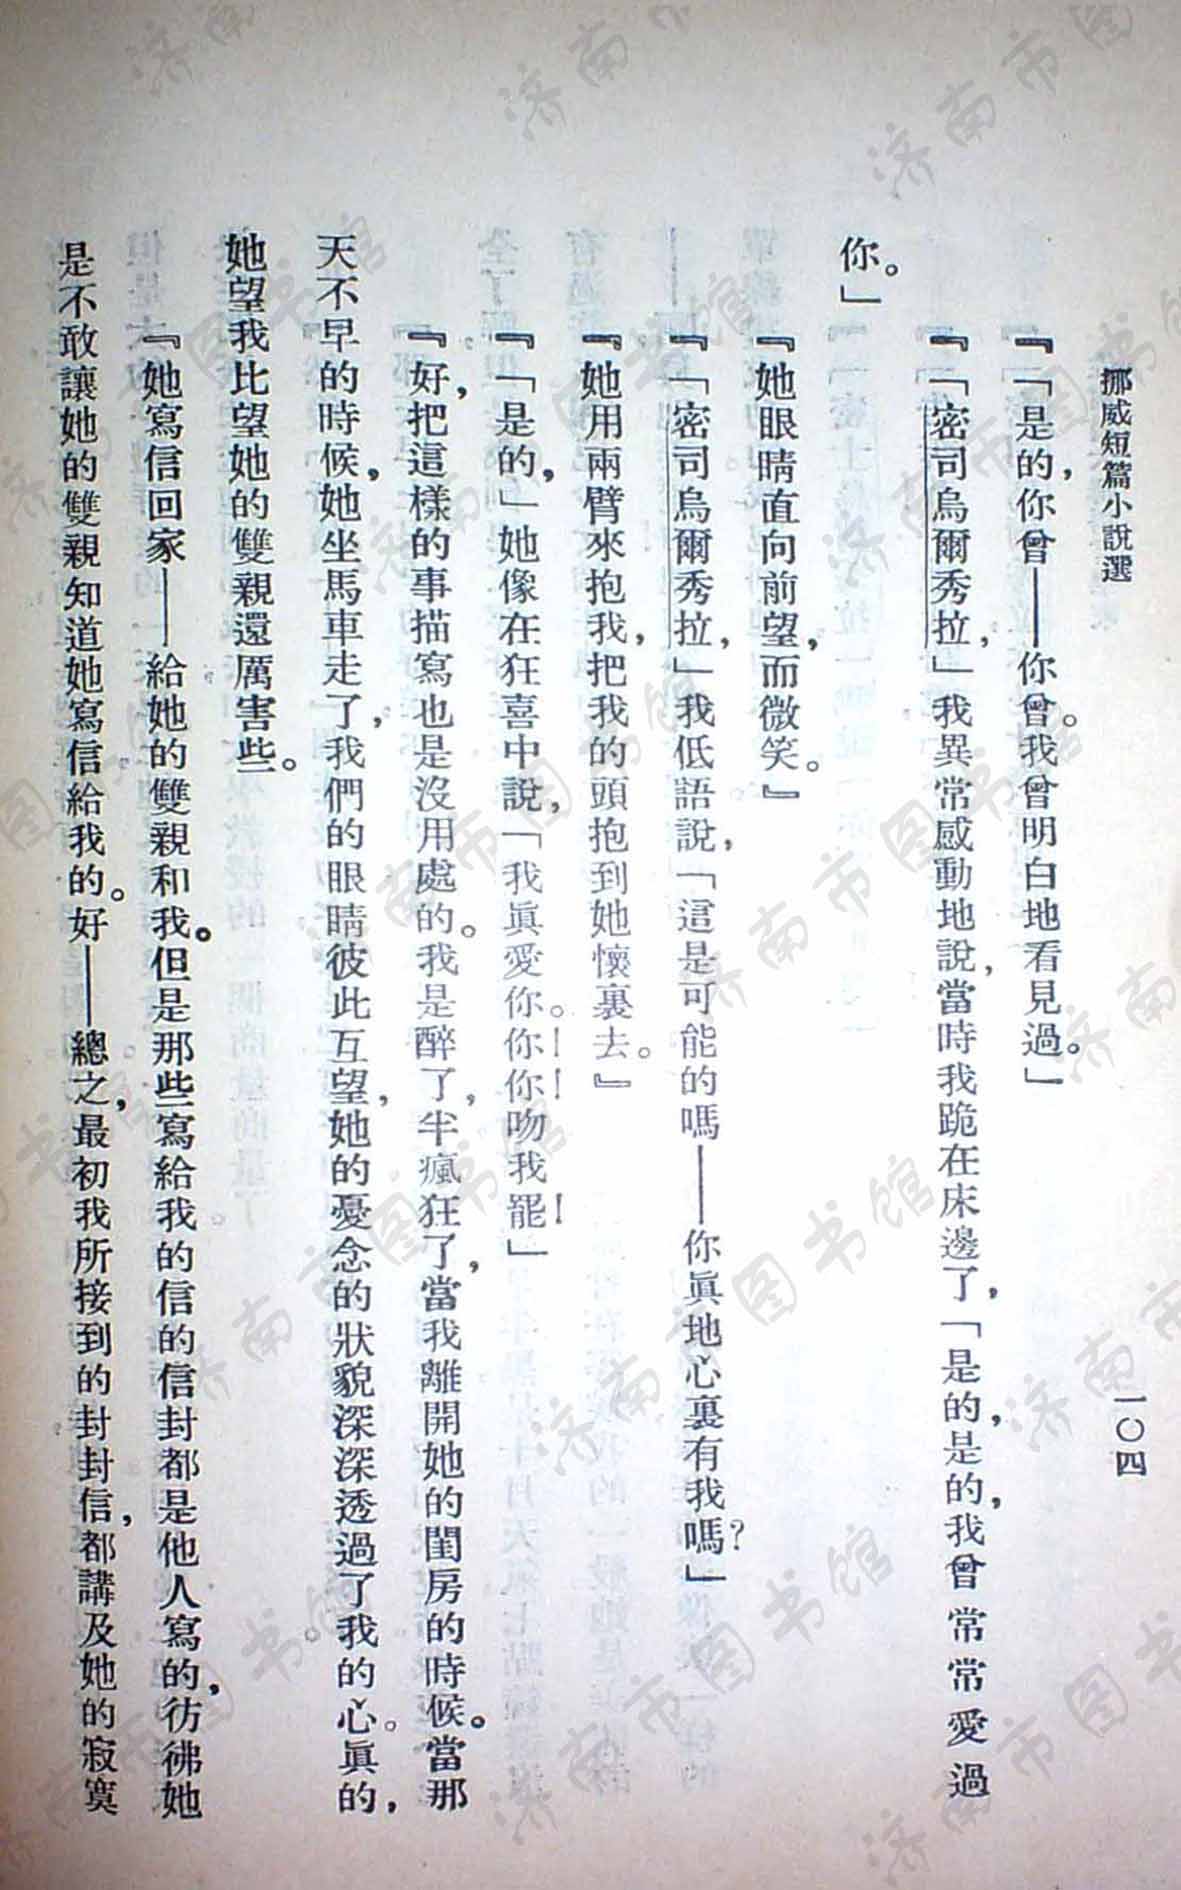 挪威短篇小說選
一〇四
『「是的，你曾——你曾。我曾明白地看見過。」
『「密司烏爾秀拉，」我異常感動地說，當時我跪在床邊了，「是的，是的，我曾常常愛過
你。」
『她眼睛直向前望，而微笑。』
『「密司烏爾秀拉，」我低語說，「這是可能的嗎——你眞地心裏有我嗎？」
『她用兩臂來抱我，把我的頭抱到她懷裏去。』
『「是的，」她像在狂喜中說，「我眞愛你。你！你！吻我罷！」
『好，把這樣的事描寫也是沒用處的。我是醉了，半瘋狂了，當我離開她的閨房的時候。當那
天不早的時候，她坐馬車走了，我們的眼睛彼此互望，她的憂念的狀貌深深透過了我的心。眞的，
她望我比望她的雙親還厲害些。
『她寫信回家——給她的雙親和我。但是那些寫給我的信的信封都是他人寫的，彷彿她
是不敢讓她的雙親知道她寫信給我的。好——總之，最初我所接到的封封信，都講及她的寂寞
济南市图书馆